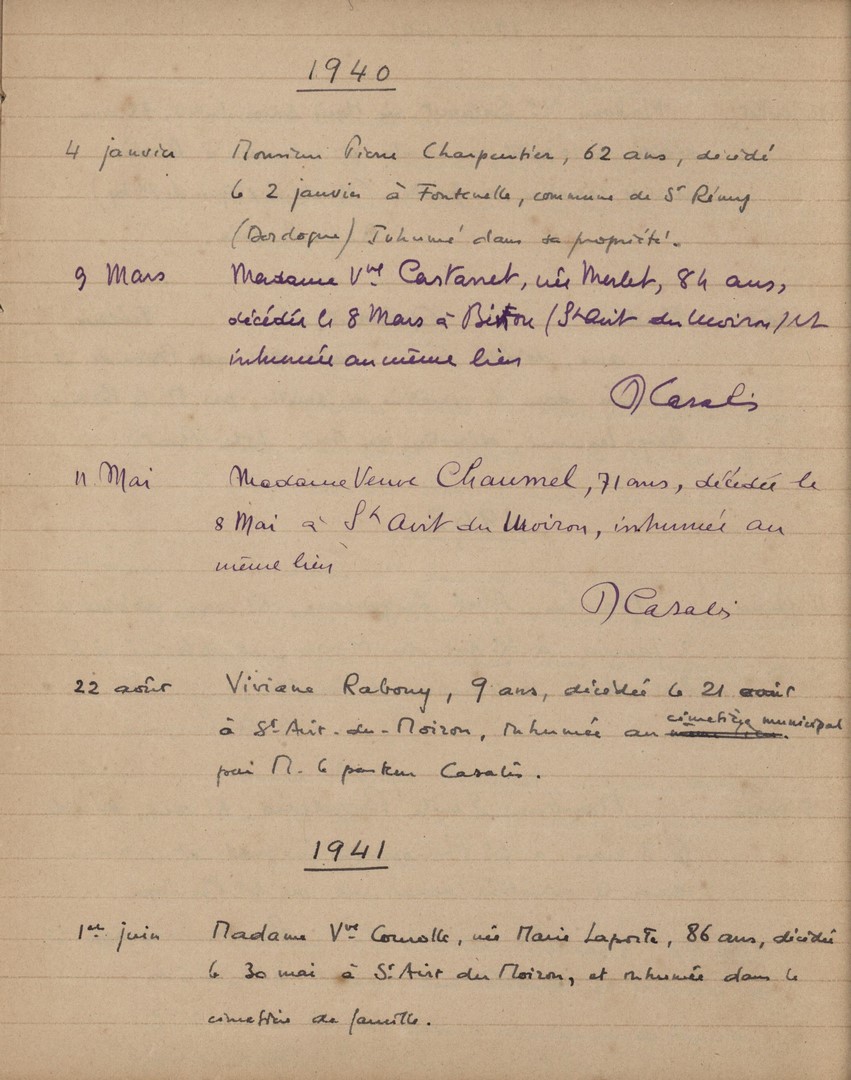 1940
4 janvier Monsieur Pierre Charpentier, 62 ans, décédé
le 2 janvier à Fontenelle, commune de St Rémy
(Dordogne) Inhumé dans sa propriété.
9 Mars Madame Vve Castanet, née Merlet, 84 ans,
décédée le 8 Mars à (St Avit du Moiron) et
inhumée au même lieu
D Casalis
11 Mai Madame Veuve Chaumel, 71 ans, décédée le
8 Mai à St Avit du Moiron, inhumée au
même lieu
D Casalis
22 août Viviane Rabouy, 9 ans, décédée le 21 août
à St. Avit-du-Moiron, inhumée au cimetière municipal
par M. le pasteur Casalis.
1941
1er juin Madame Vve née Marie Laporte, 86 ans, décédée
le 30 mai à St. Avit du Moiron, et inhumée dans le
cimetière de famille.